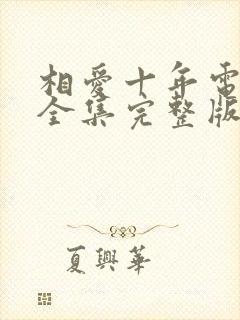 相愛十年電
全集完整版
夏興華